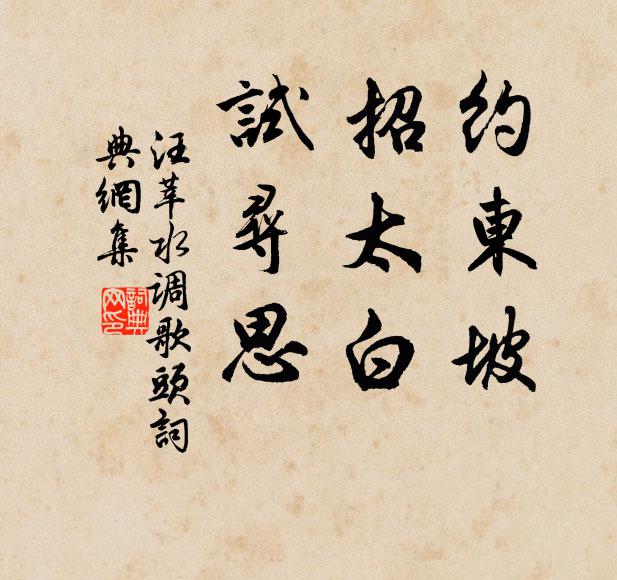 約東坡
招太白
試尋思
汪莘水调歌頭詞
典網集
詞典
网印